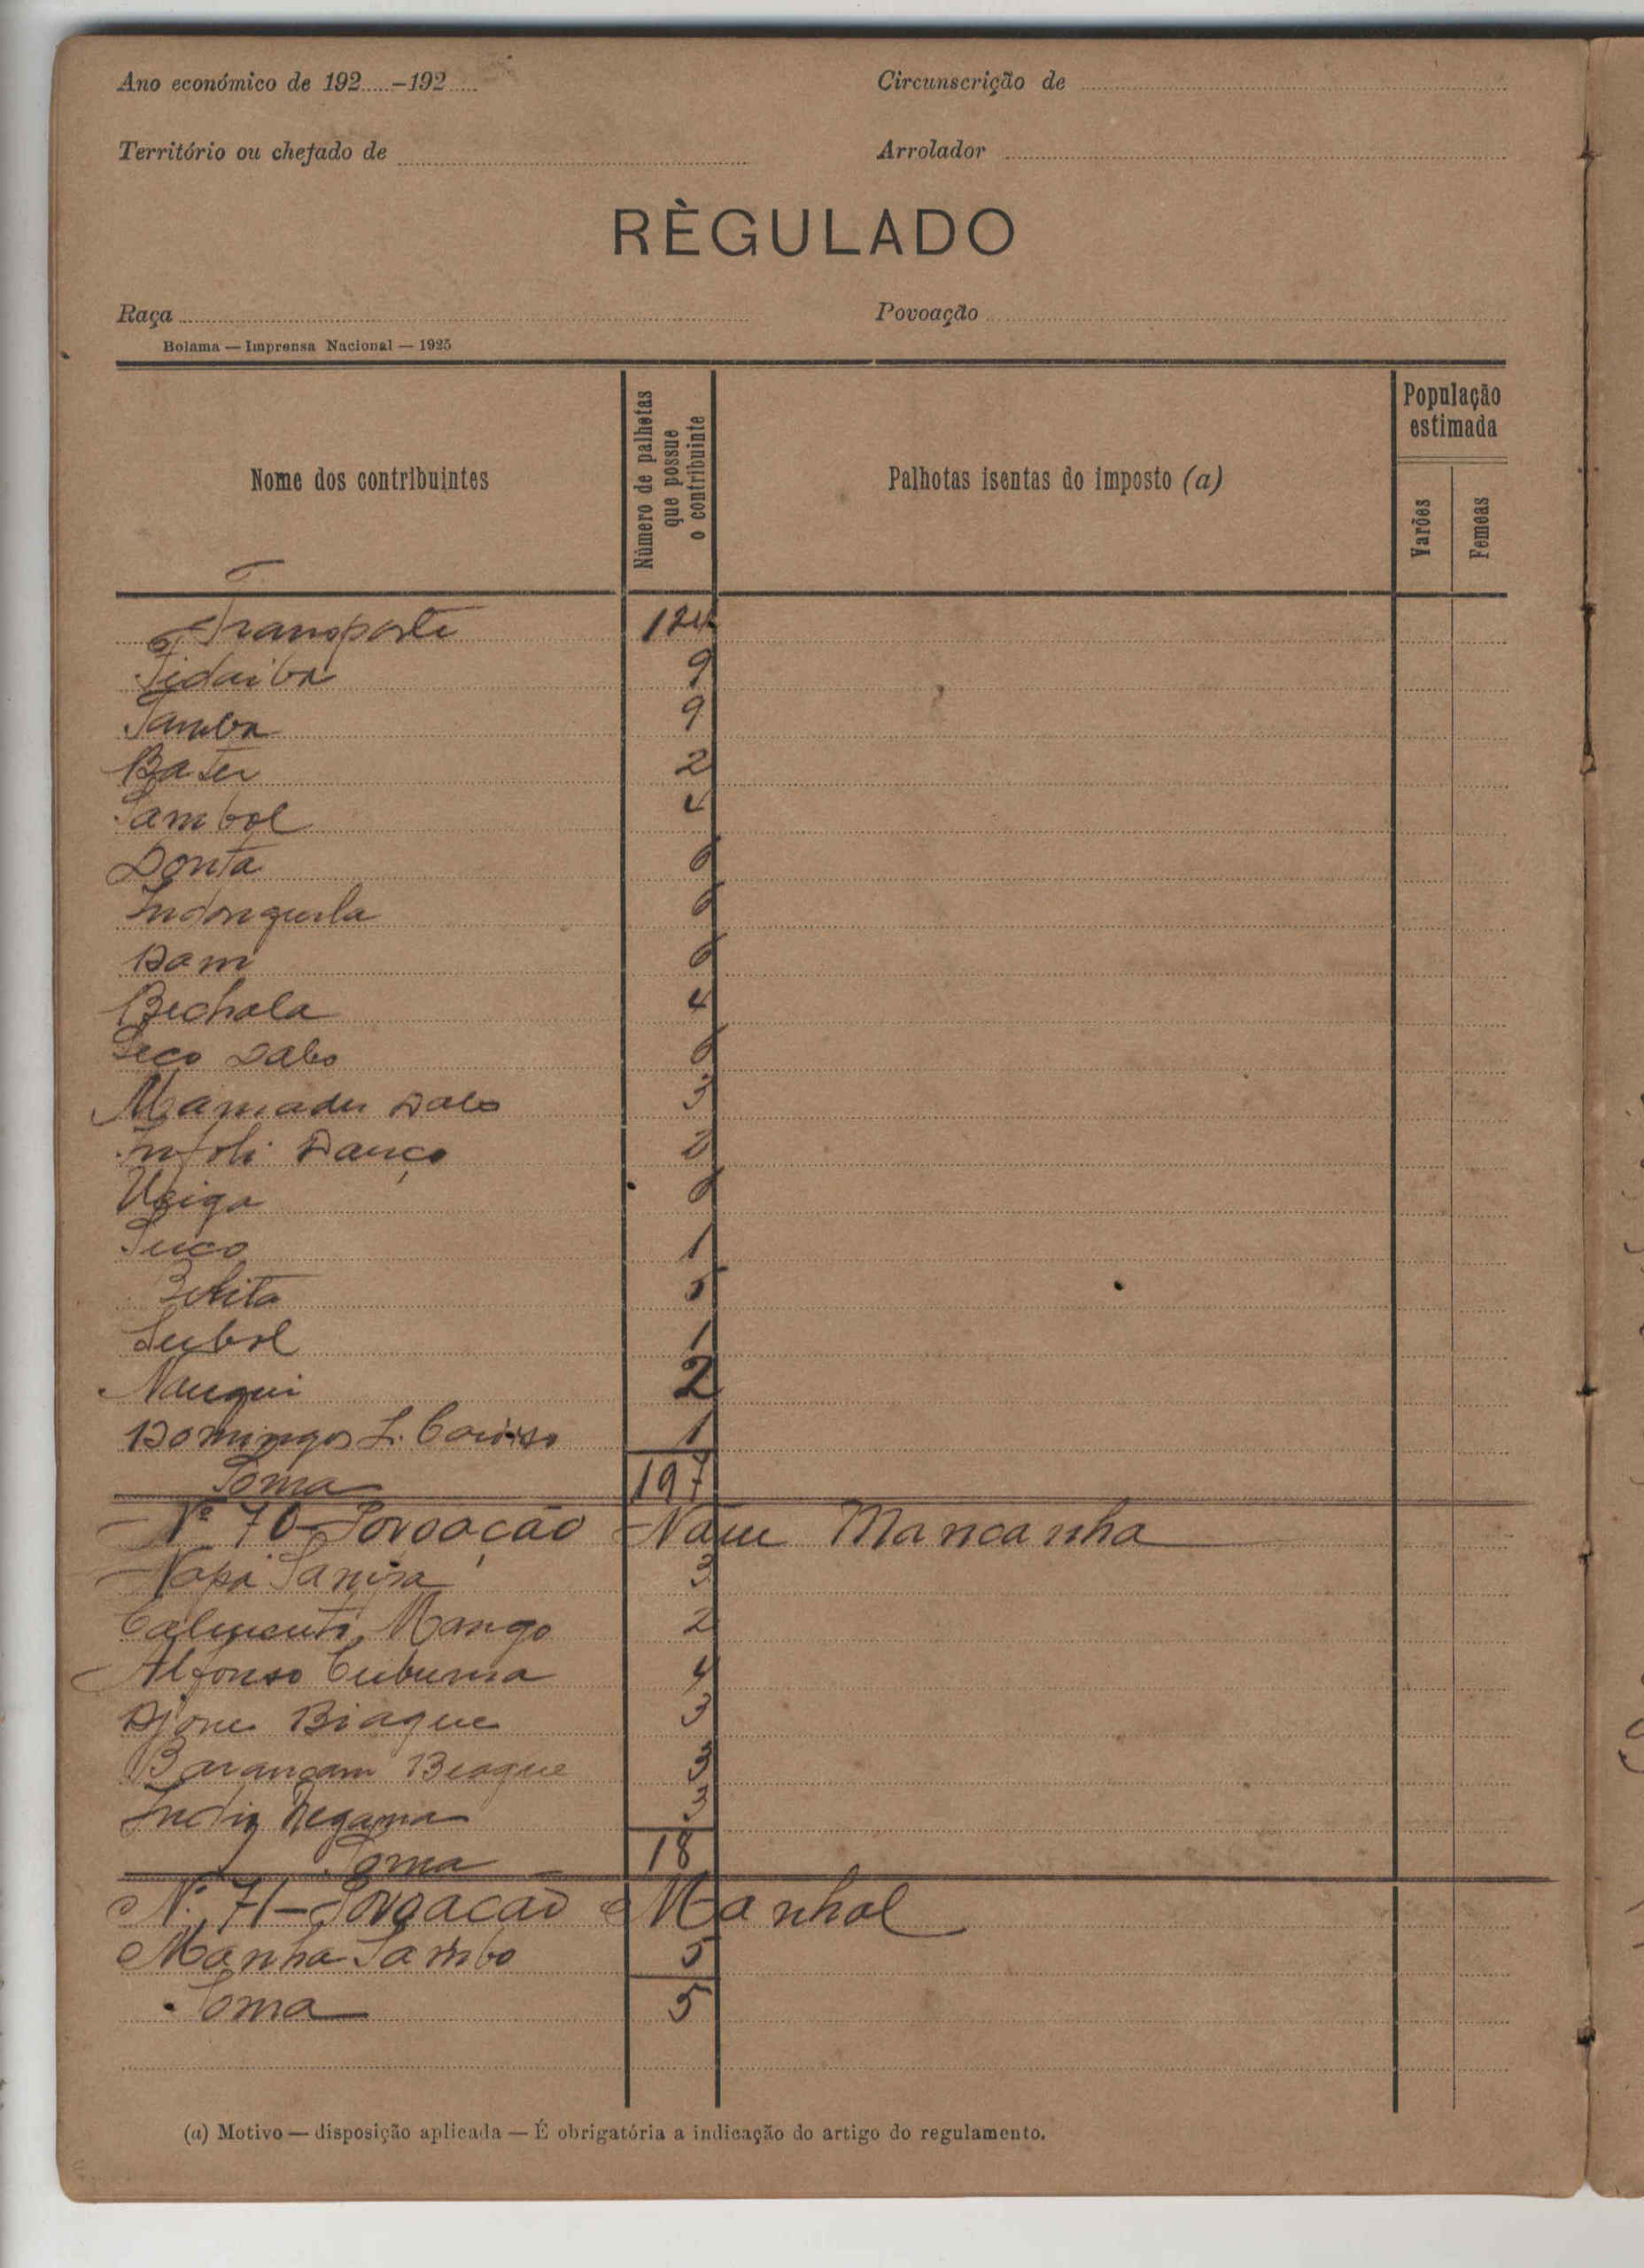 Ano económico de 192.....-192.....
Circunscrição de
Território ou chefado de
Arrolador
RÈGULADO
Raça
Povoação
Bolama — Imprensa Nacional — 1925
Nome dos contribuintes
Número de palhotas que possue o contribuinte
Palhotas isentas do imposto (a)
População estimada
Varões
Femeas
Transporte 124
9
Samba 9
Bater 2
Sambol 4
Donta 6
Indonguila 6
Dom 6
Bechala 4
Seco Dabo 6
Mamadu Dabo 3
Infoli Danço 2
6
Suco 1
Betita 5
Subol 1
Nanqui 2
Domingos L. Cardoso 1
Soma 197
Nº 70-Povoação Nam Mancanha
3
Mango 2
Alfonso 4
Djone Biague 3
Barançam Biague 3
3
Soma 18
Nº 71-Povoação Manhol
Manha Sambo 5
Soma 5
(a) Motivo — disposição aplicada — É obrigatória a indicação do artigo do regulamento.